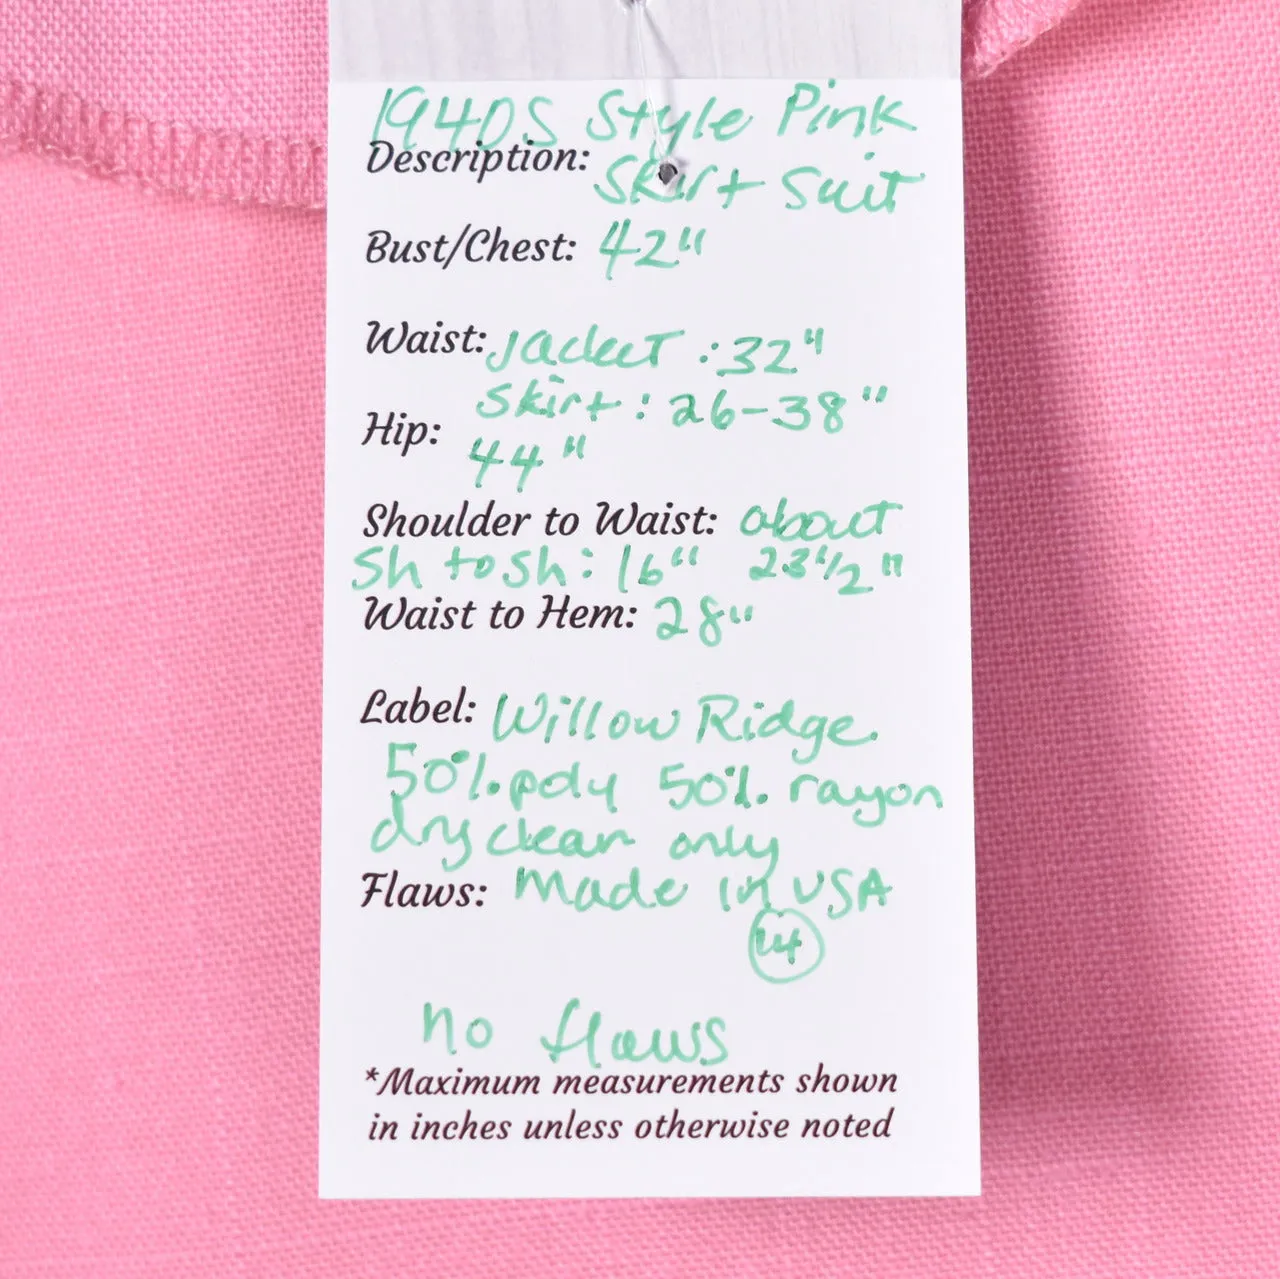 1940s Style Pink
Description: Skirt Suit
Bust/Chest: 42"
Waist: Jacket: 32"
Skirt: 26-38"
Hip: 44"
Shoulder to Waist: about
Sh to sh: 16" 23 1/2"
Waist to Hem: 28"
Label: Willow Ridge
50% poly 50% rayon
dry clean only
Flaws: Made in USA
no flaws
*Maximum measurements shown
in inches unless otherwise noted